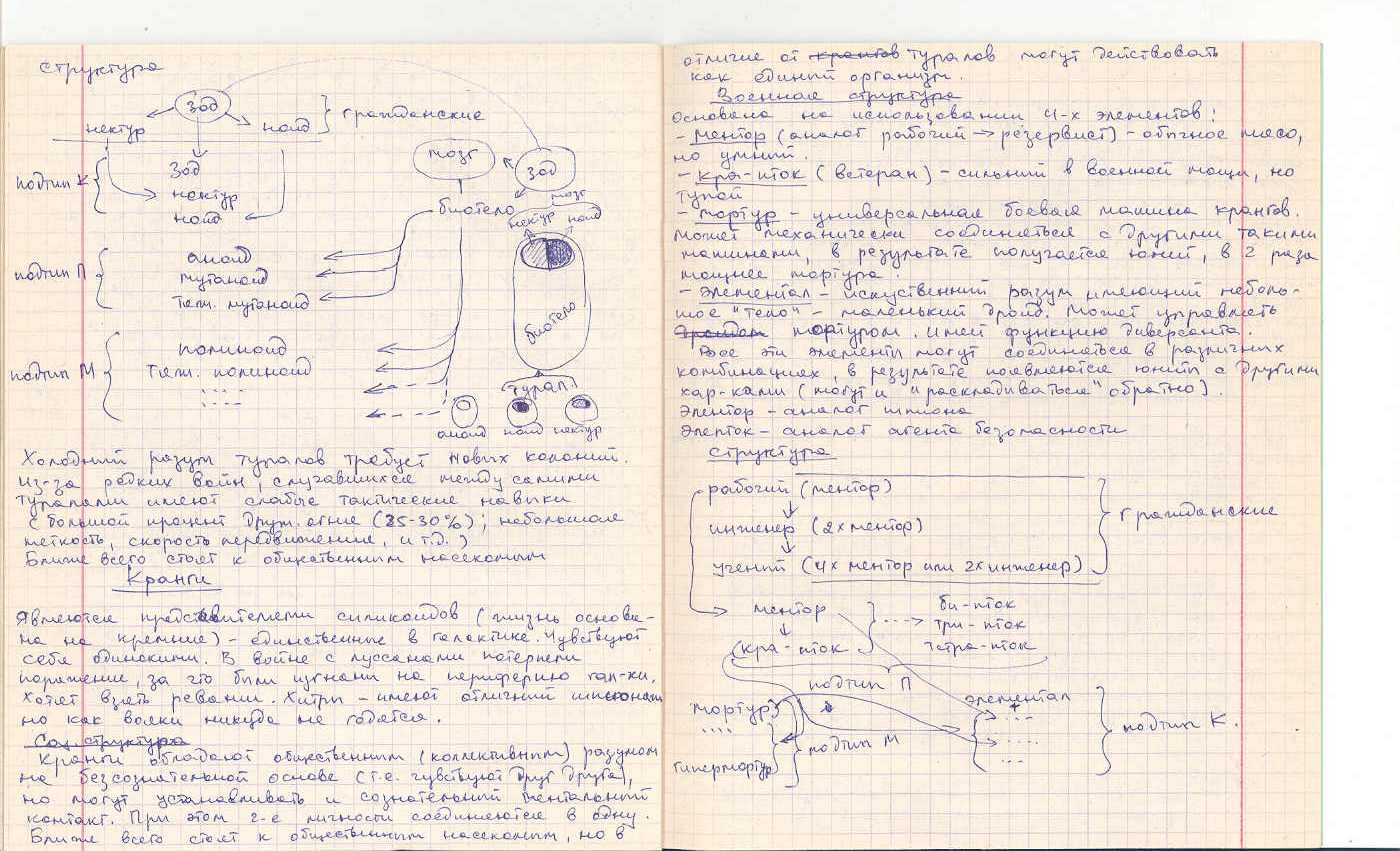 структура
Зод
нектур
ноид
гражданские
подтип К
Зод
нектур
ноид
мозг
Зод
биотело
мозг
нектур ноид
биотело
подтип П
аноид
мутаноид
тяж. мутаноид
подтип М
полиноид
тяж. полиноид
турал
аноид ноид нектур
Холодный разум туралов требует новых колоний.
Из-за редких войн, случавшихся между самими
туралами имеют слабые тактические навыки
(большой процент друж. огня (25-30%); небольшая
меткость, скорость передвижения, и т.д.)
Ближе всего стоят к общественным насекомым
Кранги
Являются представителями силикоидов (жизнь основа-
на на кремние) - единственные в галактике. Чувствуют
себя одинокими. В войне с луссанами потерпели
поражение, за что были изгнаны на периферию гал-ки.
Хотят взять реванш. Хитры - имеют отличный шпионаж
но как вояки никуда не годятся.
Соц. структура
Кранги обладают общественным (коллективным) разумом
на безсознательной основе (т.е. чувствуют друг друга),
но могут устанавливать и сознательный ментальный
контакт. При этом 2-е личности соединяются в одну.
Ближе всего стоят к общественным насекомым, но в
отличие от крангов туралов могут действовать
как единый организм.
Военная структура
Основана на использовании 4-х элементов:
- Ментор (аналог рабочий → резервист) - обычное мясо,
но умный.
- Кра-пток (ветеран) - сильный в военной мощи, но
тупой
- Мортур - универсальная боевая машина крангов.
Может механически соединяться с другими такими
машинами, в результате получается юнит, в 2 раза
мощнее мортура.
- Элементал - искуственный разум имеющий неболь-
шое "тело" - маленький дройд. Может управлять
мортуром. Имеет функцию диверсанта.
Все эти элементы могут соединяться в различных
комбинациях, в результате появляются юниты с другими
хар-ками (могут и "раскладываться" обратно).
Элентор - аналог шпиона
Элепток - аналог агента безопасности
структура
рабочий (ментор)
инженер (2х ментор)
ученый (4х ментор или 2х инженер)
гражданские
ментор
кра-пток
би-пток
три-пток
тетра-пток
подтип П
мортур
гипермортур
подтип М
элементал
подтип К.